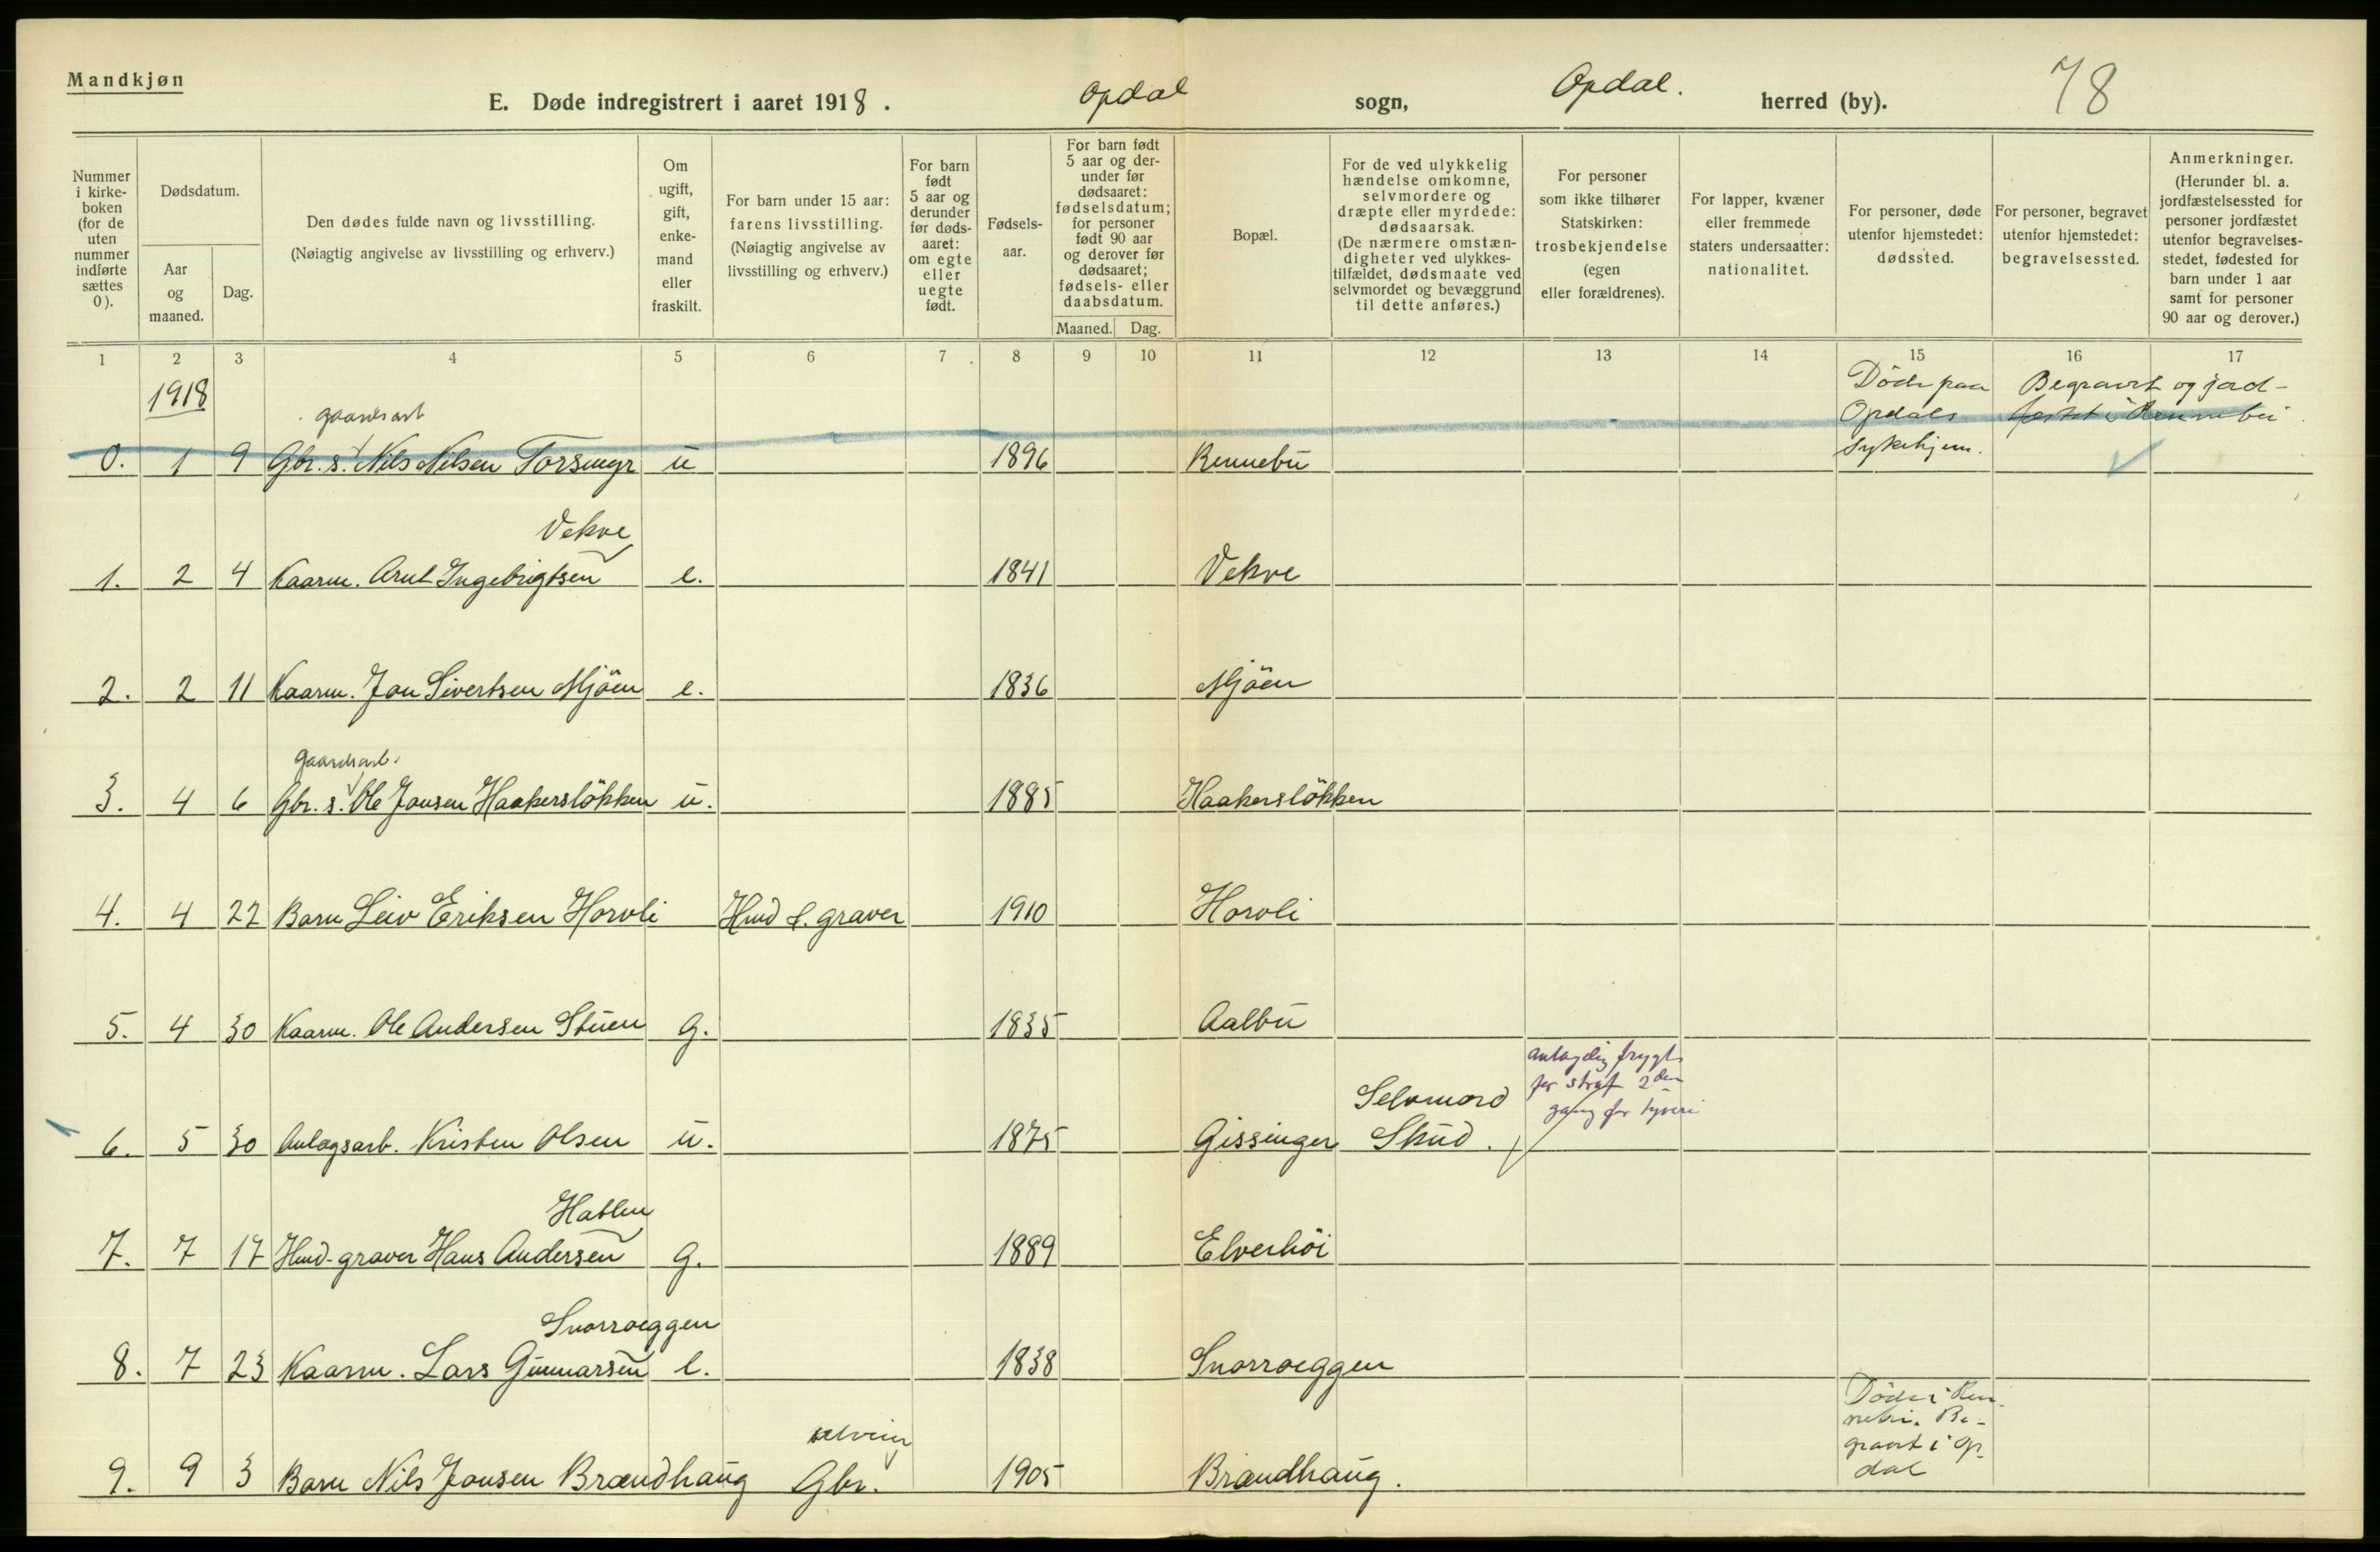 Mandkjøn
E. Døde indregistrert i aaret 1918. Opdal sogn, Opdal. herred (by). 78
Nummer i kirkeboken (for de uten nummer indførte sættes 0).
Dødsdatum.
Aar og maaned.
Dag.
Den dødes fulde navn og livsstilling.
(Nøiagtig angivelse av livsstilling og erhverv.)
Om ugift, gift, enkemand eller fraskilt.
For barn under 15 aar: farens livsstilling.
(Nøiagtig angivelse av livsstilling og erhverv.)
For barn født 5 aar og derunder før dødsaaret: om egte eller uegte født.
Fødselsaar.
For barn født 5 aar og derunder før dødsaaret: fødselsdatum; for personer født 90 aar og derover før dødsaaret; fødsels- eller daabsdatum.
Maaned. Dag.
Bopæl.
For de ved ulykkelig hændelse omkomne, selvmordere og dræpte eller myrdede: dødsaarsak.
(De nærmere omstændigheter ved ulykkestilfældet, dødsmaate ved selvmordet og bevæggrund til dette anføres.)
For personer som ikke tilhører Statskirken: trosbekjendelse (egen eller forældrenes).
For lapper, kvæner eller fremmede staters undersaatter: nationalitet.
For personer, døde utenfor hjemstedet: dødssted.
For personer, begravet utenfor hjemstedet: begravelsessted.
Anmerkninger.
(Herunder bl. a. jordfæstelsessted for personer jordfæstet utenfor begravelsesstedet, fødested for barn under 1 aar samt for personer 90 aar og derover.)
1 2 3 4 5 6 7 8 9 10 11 12 13 14 15 16 17
1918
gaardsarb
Døde paa Opdals Sykehjem.
Begravet og jordfæstet i Rennebu
0. 1 9 Gbr. s. Nils Nilsen Torsmyr u 1896 Rennebu
Vekve
1. 2 4 Kaarm. Arnt Ingebrigtsen e. 1841 Vekve
2. 2 11 Kaarm. Jon Sivertsen Mjöen e. 1836 Mjöen
gaardsarb.
3. 4 6 Gbr. s. Ole Jonsen Haakerslökken u. 1885 Haakerslökken
4. 4 22 Barn Leiv Eriksen Horvli Hmd & graver 1910 Horvli
5. 4 30 Kaarm. Ole Andersen Stuen g. 1835 Aalbu
antagelig frygt
for straf 2den
gang for tyveri
Selvmord
6. 5 30 Anlægsarb. Kristen Olsen u. 1875 Gissinger Skud.
Hatlen
7. 7 17 Hmd-graver Hans Andersen g. 1889 Elverhöi
Snorroeggen
8. 7 23 Kaarm. Lars Gunnarsen e. 1838 Snorroeggen
Döde i Rennebu. Begravet i Opdal
selveier
9. 9 3 Barn Nils Jonsen Brændhaug Gbr. 1905 Brændhaug.